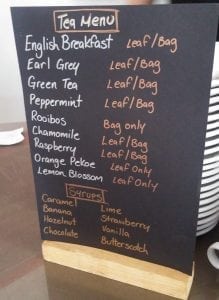 Tea Menu
English Breakfast Leaf/Bag
Earl Grey Leaf/Bag
Green Tea Leaf/Bag
Peppermint Leaf/Bag
Rooibos Bag only
Chamomile Leaf/Bag
Raspberry Leaf/Bag
Orange Pekoe Leaf Only
Lemon Blossom Leaf Only
Syrups
Caramel Lime
Banana Strawberry
Hazelnut Vanilla
Chocolate Butterscotch